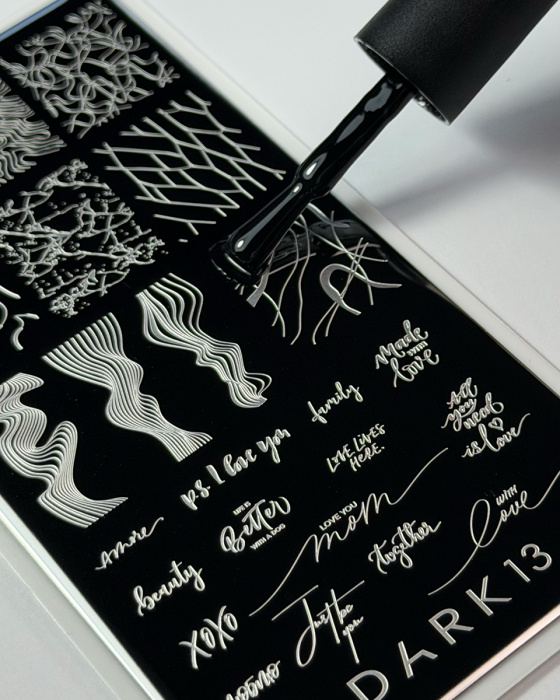 Made
with
love
family
all
you
need
is love
p.s. I love you
LOVE LIVES
HERE.
amore
LIFE IS
Better
WITH A DOG
LOVE YOU
mom
together
with
love
beauty
XOXO
Just be
you
DARK 13